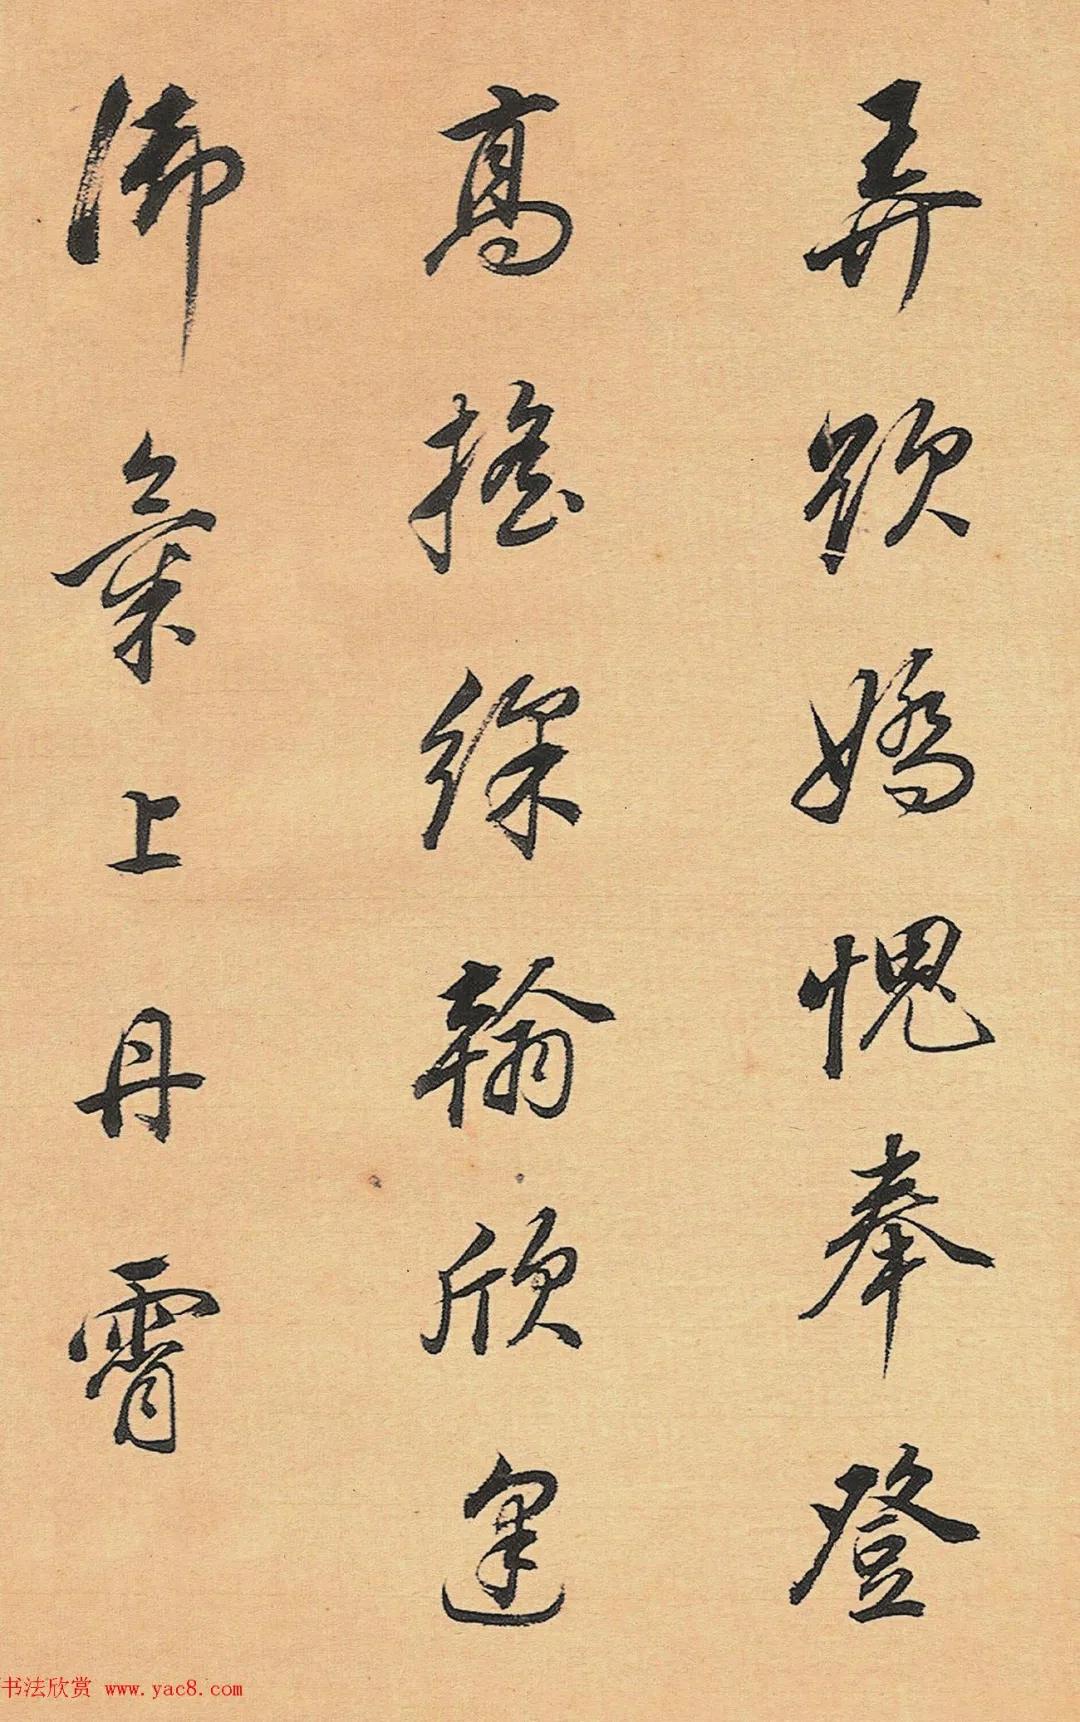 弄欲嬌愧奉登
高搖綵翰欣逢
御氣上丹霄
书法欣赏 www.yac8.com